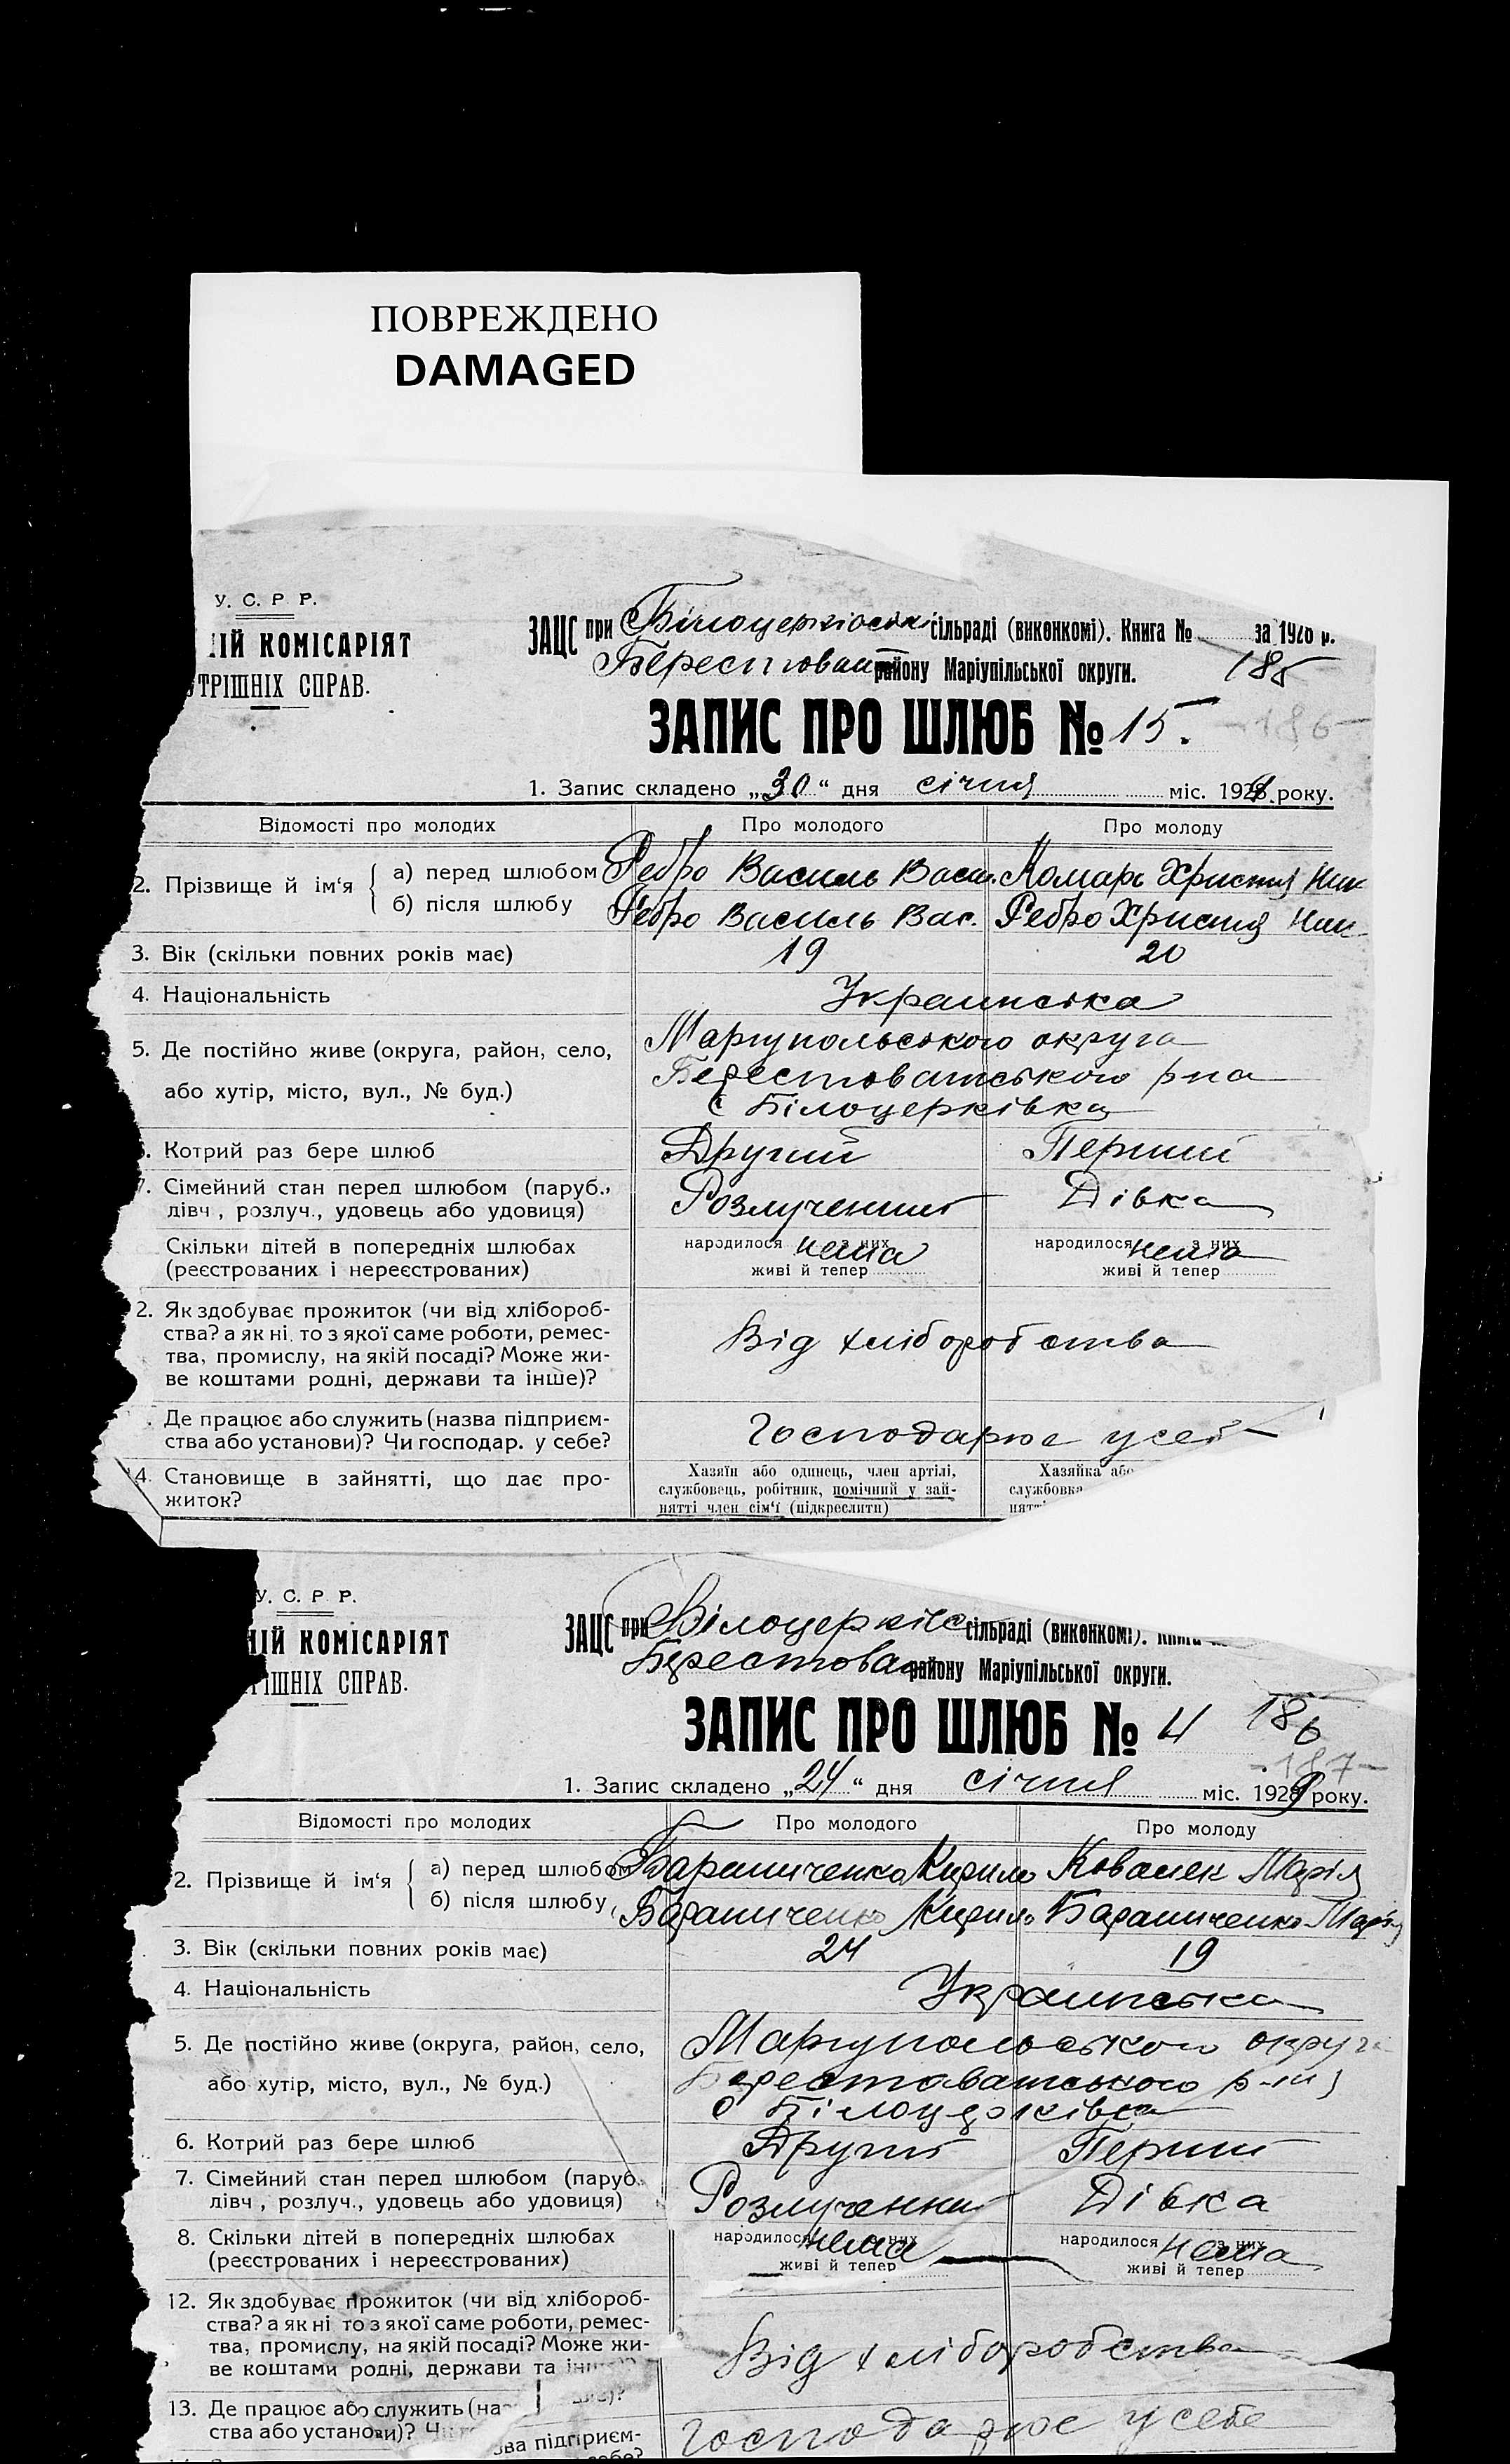 ПОВРЕЖДЕНО
DAMAGED
У. С. Р Р.
ІЙ КОМІСАРІЯТ
ТРІШНІХ СПРАВ.
ЗАЦС при Білоцерківськ сільраді (виконкомі). Книга № за 1928 р.
Берестован району Маріупільської округи.
185
ЗАПИС ПРО ШЛЮБ № 15.
-186-
1. Запис складено „30“ дня січня міс. 1929 року.
Відомості про молодих Про молодого Про молоду
2. Прізвище й ім‘я а) перед шлюбом Ребро Василь Васил. Комарь Христия Ник
б) після шлюбу Ребро Василь Вас. Ребро Христия Ник
3. Вік (скільки повних років має) 19 20
4. Національність Украинська
5. Де постійно живе (округа, район, село, Мариупольського округа
або хутір, місто, вул., № буд.) Берестоватського р-на
с Білоцерківка
Котрий раз бере шлюб Другий Перший
7. Сімейний стан перед шлюбом (паруб.,
дівч., розлуч., удовець або удовиця) Розлучений Дівка
Скільки дітей в попередніх шлюбах народилося нема з них народилося нема з них
(реєстрованих і нереєстрованих) живі й тепер живі й тепер
2. Як здобуває прожиток (чи від хлібороб-
ства? а як ні, то з якої саме роботи, ремес-
тва, промислу, на якій посаді? Може жи- Від хліборобства
ве коштами родні, держави та інше)?
Де працює або служить (назва підприєм-
ства або установи)? Чи господар. у себе? Господарює у себе
14. Становище в зайнятті, що дає про-
житок?
Хазяїн або одинець, член артілі, Хазяйка або
службовець, робітник, помічний у зай- службовка
нятті член сім‘ї (підкреслити) нятт
У. С. Р Р.
ІЙ КОМІСАРІЯТ
РІШНІХ СПРАВ.
ЗАЦС при Білоцерківс сільраді (виконкомі). Книга
Берестован району Маріупільської округи.
ЗАПИС ПРО ШЛЮБ № 4 186
-187-
1. Запис складено „24“ дня січня міс. 1929 року.
Відомості про молодих Про молодого Про молоду
2. Прізвище й ім‘я а) перед шлюбом Бараниченко Кирило Ковалек Марія
б) після шлюбу Бараниченко Кирило Бараниченко Марія
3. Вік (скільки повних років має) 24 19
4. Національність Украинська
5. Де постійно живе (округа, район, село, Мариупольського округа
або хутір, місто, вул., № буд.) Берестоватського р-ну
с Білоцерківка
6. Котрий раз бере шлюб Другий Перший
7. Сімейний стан перед шлюбом (паруб.,
дівч., розлуч., удовець або удовиця) Розлучений Дівка
8. Скільки дітей в попередніх шлюбах народилося нема з них народилося нема з них
(реєстрованих і нереєстрованих) живі й тепер живі й тепер
12. Як здобуває прожиток (чи від хлібороб-
ства? а як ні то з якої саме роботи, ремес-
тва, промислу, на якій посаді? Може жи- Від хліборобства
ве коштами родні, держави та
13. Де працює або служить (на
ства або установи)? Ч
ва підприєм- Господарює у себе
себе?